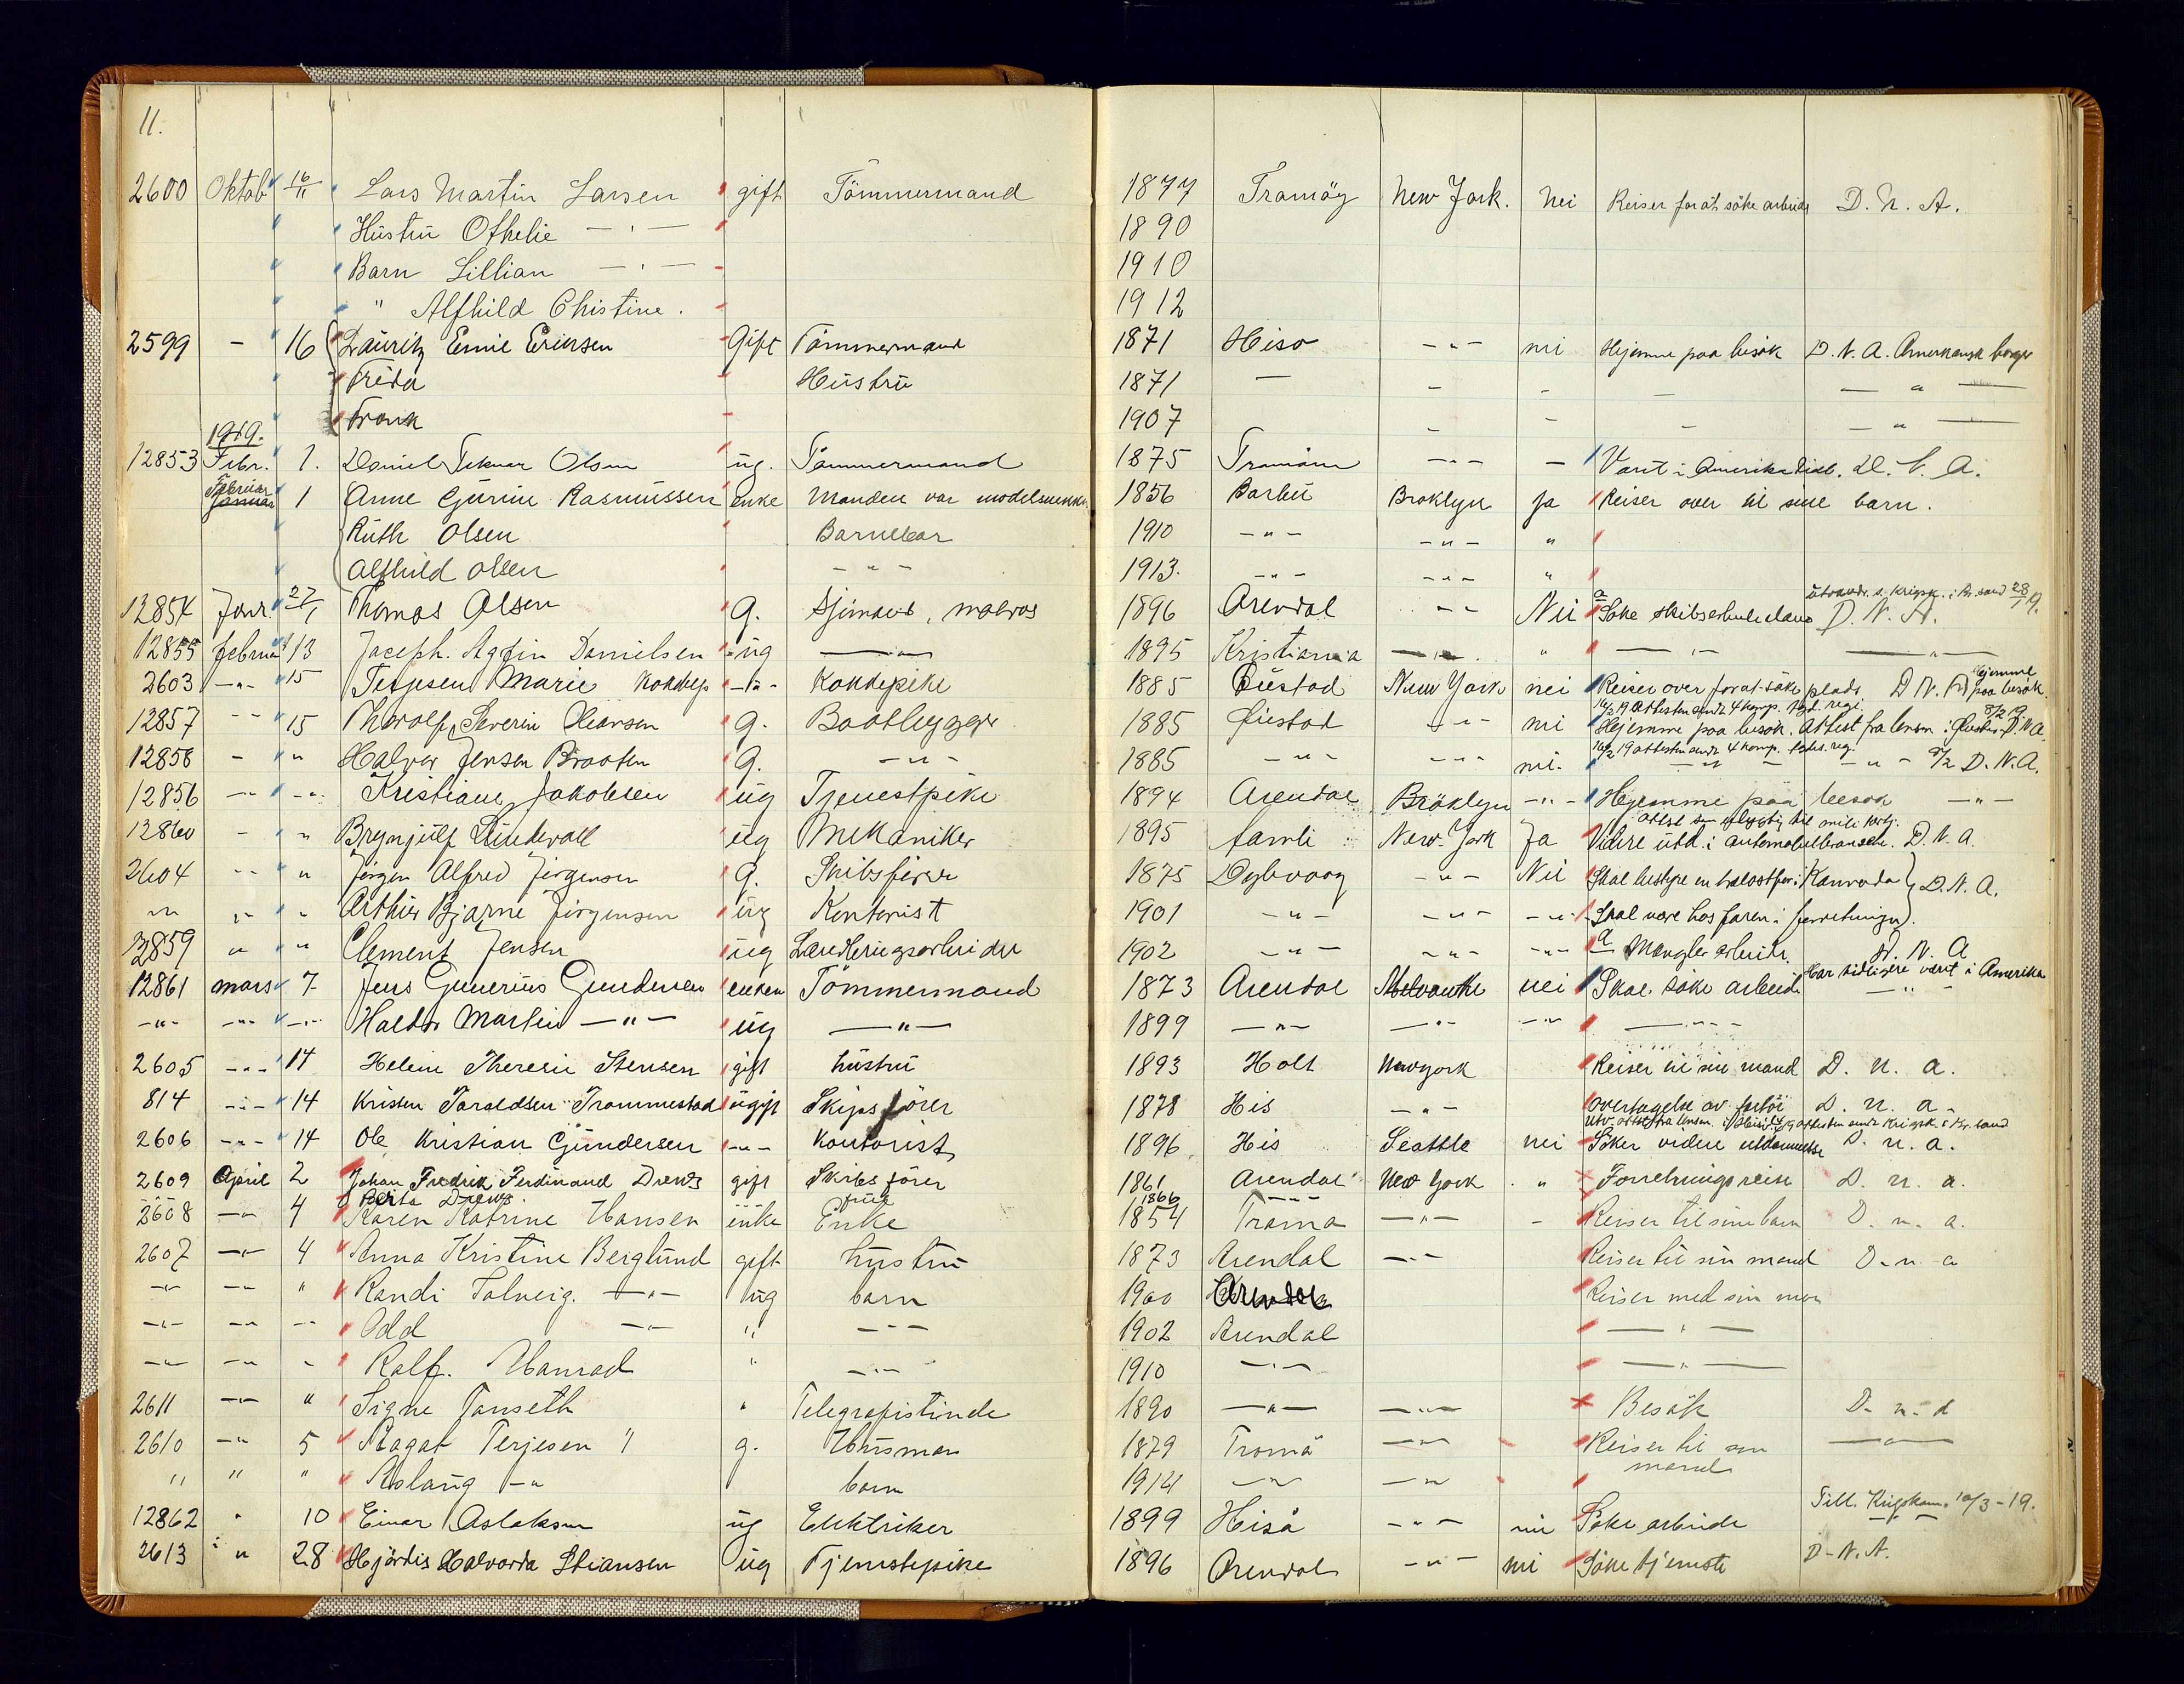 11.
2600 Oktob 16/11 Lars Martin Larsen gift Tömmermand 1877 Tramöy New York. Nei Reiser for at söke arbeide D. N. A.
Hüstrü Othelie — " — 1890
Barn Lillian — " — 1910
" Alfhild Christine. 1912
2599 - 16 Lauritz Emil Eriksen Gift Tömmermand 1871 Hiso - " - nei Hjemme paa besök D. N. A. Amerikansk borger
Frida Hüstrü 1871 — - - - — " —
Frank 1907 - - - — " —
1919.
12853 Febr. 1. Daniel Olsen üg. Tömmermand 1875 Tromöen - " - — Vært i Amerika D. N. A.
Februar Januar 1 Anne Gürine Rasmüssen enke Manden var 1856 Barbü Broklyn Ja Reiser over til sine barn.
Rüth Olsen Barnebar 1910 - " - - " - "
Alfhild Olsen - " - 1913. - " - - " - "
12854 Janr. 27/1 Thomas Olsen g. Sjömand, matros 1896 Arendal - " - Nei Söke D. N. A.
12855 februar 13 Joseph. Danielsen üg — " — 1895 Kristiania — " — " — " — — " —
2603 - " - 15 Terjesen Marie - " - Kokkepike 1885 Öiestad New York nei Reiser over for at söke plads. D. N. A. Hjemme paa besök.
16/2 19 Attest
12857 - " 15 Thorolf Severin g. Baatbygger 1885 Öiestad - " - nei Hjemme paa besök. Attest fra lensm. i Öiestad D. N. A.
16/2 19 attest
12858 - " Halvor Jensen Braaten g. - " - 1885 - " - - " - nei. - " - - " - 8/2 D. N. A.
12856 - " - " Kristiane Jakobsen üg Tjenestpike 1894 Arendal Bröklyn - " - Hjemme paa besök — " —
12860 - " Brynjülf Lindvall üg Mekaniker 1895 Aamli New-York Ja Videre ütd. i automobilbransch. D. N. A.
2604 - " " Jörgen Alfred Jörgensen g. Skibsförer 1875 Dybvaag - " - Nei Skal bestyre en i Kanada } D. N. A.
" " " Arthür Bjarne Jörgensen üg Kontorist 1901 - " - - " - - " - Skal være hos faren i forretningen
12859 " " Clement Jensen üg 1902 - " - - " - - " - Mangler arbeide. D. N. A
12861 mars 7 Jens Gunerius Gundersen enkem Tömmermand 1873 Arendal nei Skal söke arbeide Har tidligere vært i Amerika - " -
- " - - " - - " - Haldor Martin — " — üg — " — 1899 — " — — " — - " - — " —
2605 - " - 14 Helene Theresie Stensen gift hüstrü 1893 Holt Newyork Reiser til sin mand D. n. a.
814 - " - 14 Kristen Taraldsen Trommestad ügift Skipsförer 1878 His - " - Overtagelse av fartöi D. n. a.
2606 - " - 14 Ole Kristian Gündersen - " - kontorist 1896 His Seattle nei Söker videre uddannelse D. n. a.
2609 April 2 Johan Fredrik Ferdinand Drews gift Skibsförer 1861 Arendal New York " Forretningsreise D. n. a.
Berta Drews früe 1866 - " -
2608 - " 4 Karen Katrine Hansen enke Enke 1854 Tromø — " — - Reiser til sine barn D. n. a.
2607 - " - 4 Anna Kristine Berglünd gift hüstrü 1873 Arendal — " — Reiser til sin mand D. n. a
- " - - " " Randi Solveig. — " — üg barn 1900 Arendal Reiser med sin mor
- " - - " - " Odd — " — " - " - 1902 Arendal — " —
- " - - " " Ralf. Hanrad " - " - 1910 — " — — " —
2611 - " - " Signe Janseth " Telegrafistinde 1890 — " — — " — Besök D. n. a
2610 - " 5 Ragat Terjesen " g. 1879 Tromø — " - Reiser til sin mand — " —
" " " Aslaüg - " barn 1914 - " - - "
12862 " 10 Einar Aslaksen üg Elektriker 1899 Hisö - " - nei Söke arbeide Till. Krigskom. 10/3 - 19.
2613 " 28 Hjördis Halvorda Stiansen üg Tjenestepike 1896 Arendal - " - nei Söke tjeneste D. N. A.